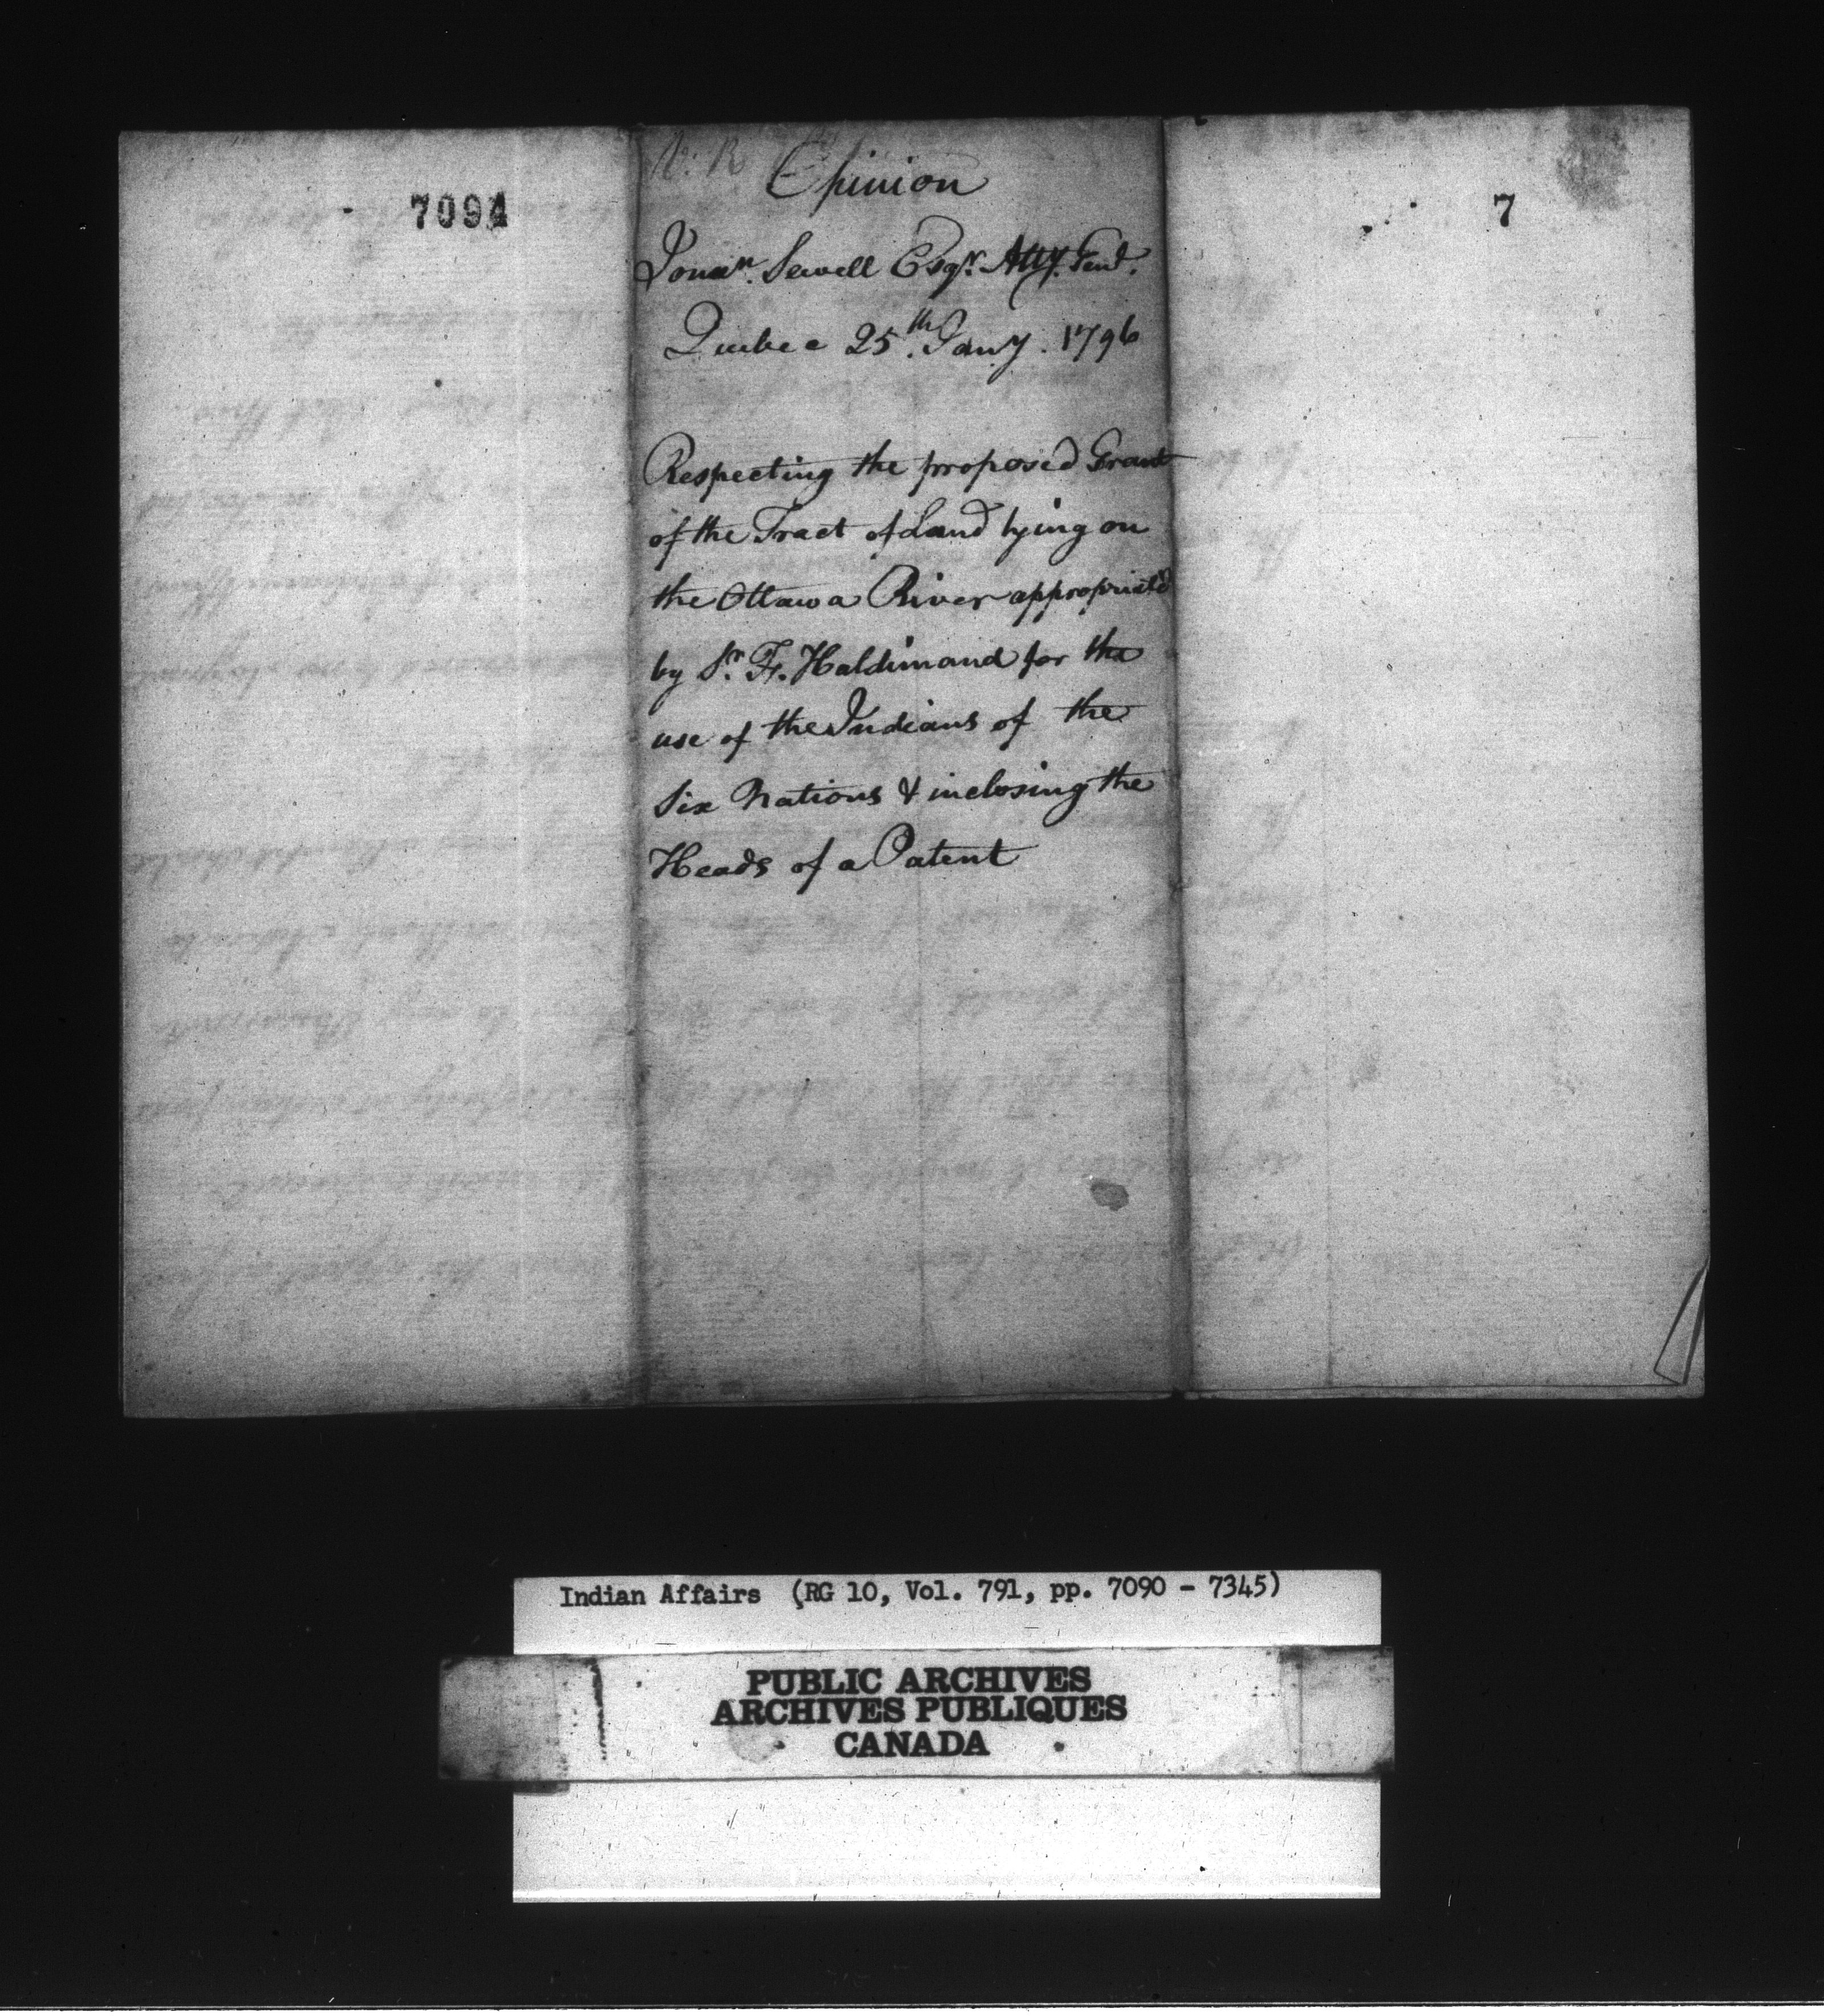 7094
Opinion
Jonan. Sewell Esqr. Atty. Genl.
Quebec 25th. Jany. 1796
Respecting the proposed Grant
of the Tract of Land lying on
the Ottawa River appropriated
by Sr. F. Haldimand for the
use of the Indians of the
Six Nations & inclosing the
Heads of a Patent
7
Indian Affairs (RG 10, Vol. 791, pp. 7090 - 7345)
PUBLIC ARCHIVES
ARCHIVES PUBLIQUES
CANADA